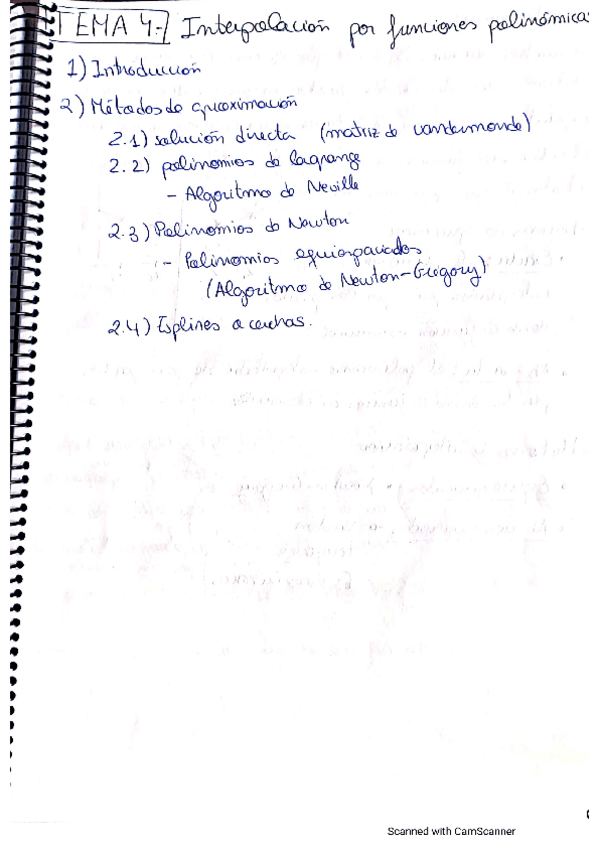 TEMA 4.- Interpolación por funciones polinómicas
1) Introducción
2) Métodos de aproximación
2.1) solución directa (matriz de vandermonde)
2.2) polinomios de lagrange
- Algoritmo de Neville
2.3) Polinomios de Newton
- Polinomios equiespaciados
(Algoritmo de Newton-Gregory)
2.4) Esplines o cerchas.
Scanned with CamScanner